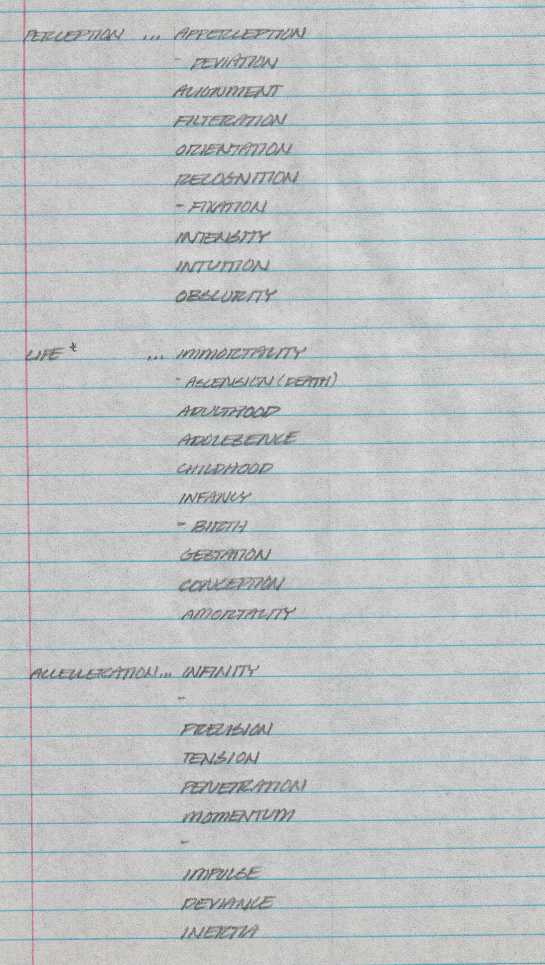 PERCEPTION ... APPERCEPTION
- DEVIATION
ALIGNMENT
FILTERATION
ORIENTATION
RECOGNITION
- FIXATION
INTENSITY
INTUITION
OBSCURITY
LIFE * ... IMMORTALITY
- ASCENSION (DEATH)
ADULTHOOD
ADOLESENCE
CHILDHOOD
INFANCY
- BIRTH
GESTATION
CONCEPTION
AMORTALITY
ACCELLERATION... INFINITY
-
PRECISION
TENSION
PENETRATION
MOMENTUM
-
IMPULSE
DEVIANCE
INERTIA